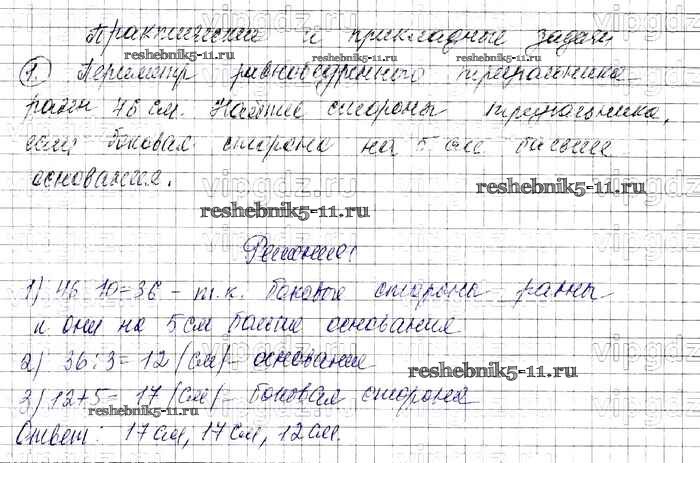 Практические и прикладные задачи
reshebnik5-11.ru
1. Периметр равнобедренного треугольника
равен 46 см. Найдите стороны треугольника,
если боковая сторона на 5 см больше
основания.
reshebnik5-11.ru
reshebnik5-11.ru
reshebnik5-11.ru
Решение:
1) 46-10=36 - т.к. боковые стороны равны
и они на 5 см больше основания
2) 36:3=12 (см) - основание
reshebnik5-11.ru
3) 12+5=17 (см) - боковая сторона
reshebnik5-11.ru
Ответ: 17 см, 17 см, 12 см.